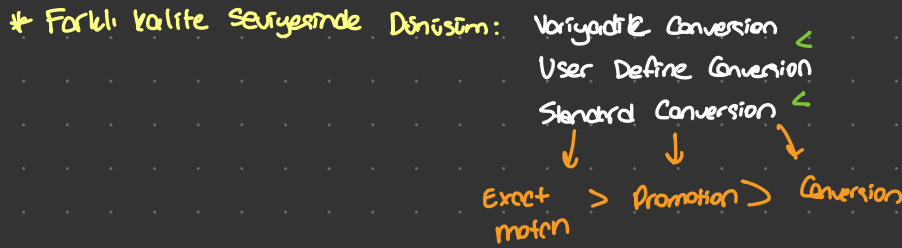 * Farklı kalite seviyesinde Dönüsüm: Variyadik Conversion <
User Define Conversion
Standard Conversion <
Exact match > Promotion > Conversion